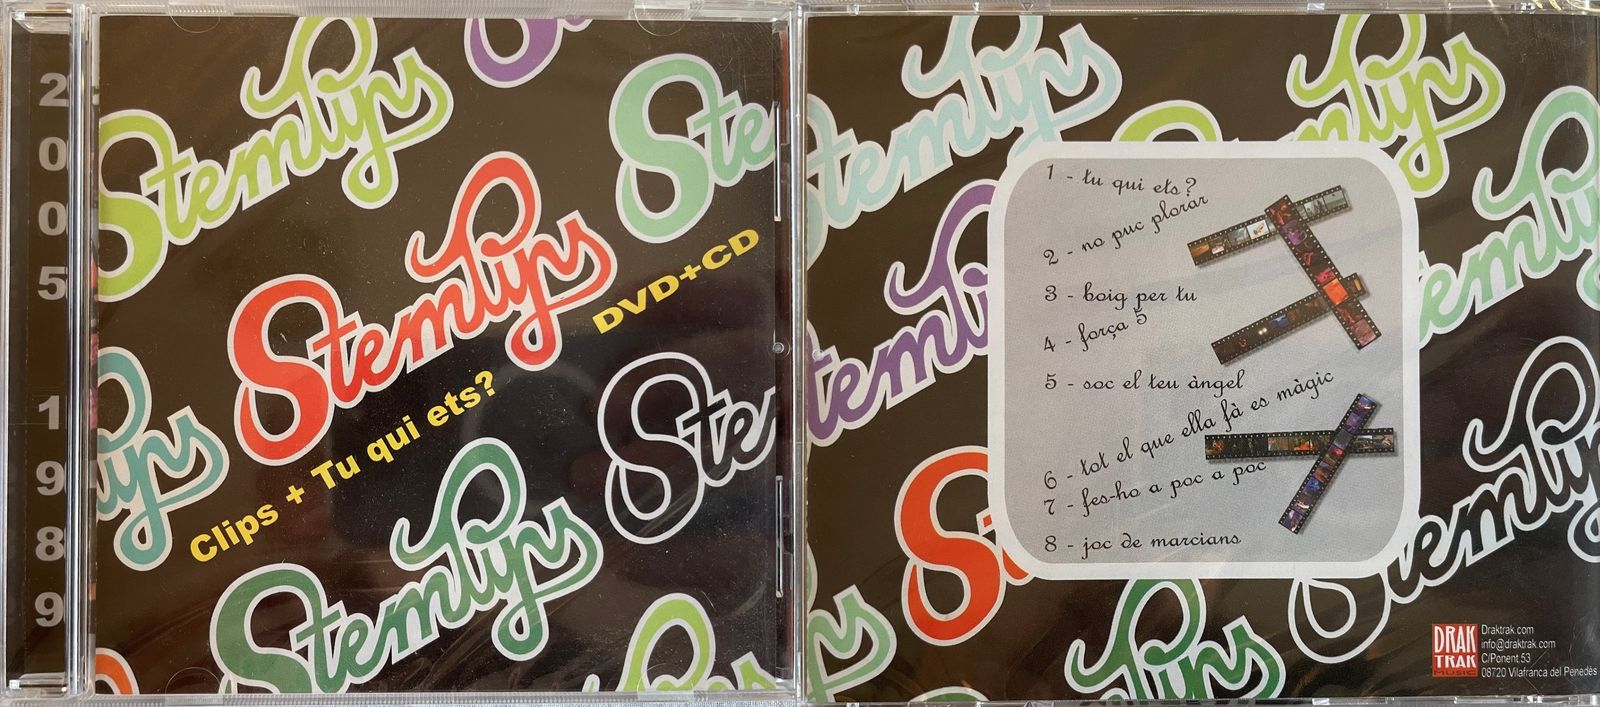 2
0
0
5
1
9
8
9
Stemlyns
Ste
Stemlyns
DVD+CD
Clips + Tu qui ets?
Ste
Stemlyns
1 - tu qui ets?
2 - no puc plorar
3 - boig per tu
4 - força 5
5 - soc el teu àngel
6 - tot el que ella fà es màgic
7 - fes-ho a poc a poc
8 - joc de marcians
DRAK
TRAK
MUSIC
Draktrak.com
info@draktrak.com
C/Ponent 53
08720 Vilafranca del Penedès